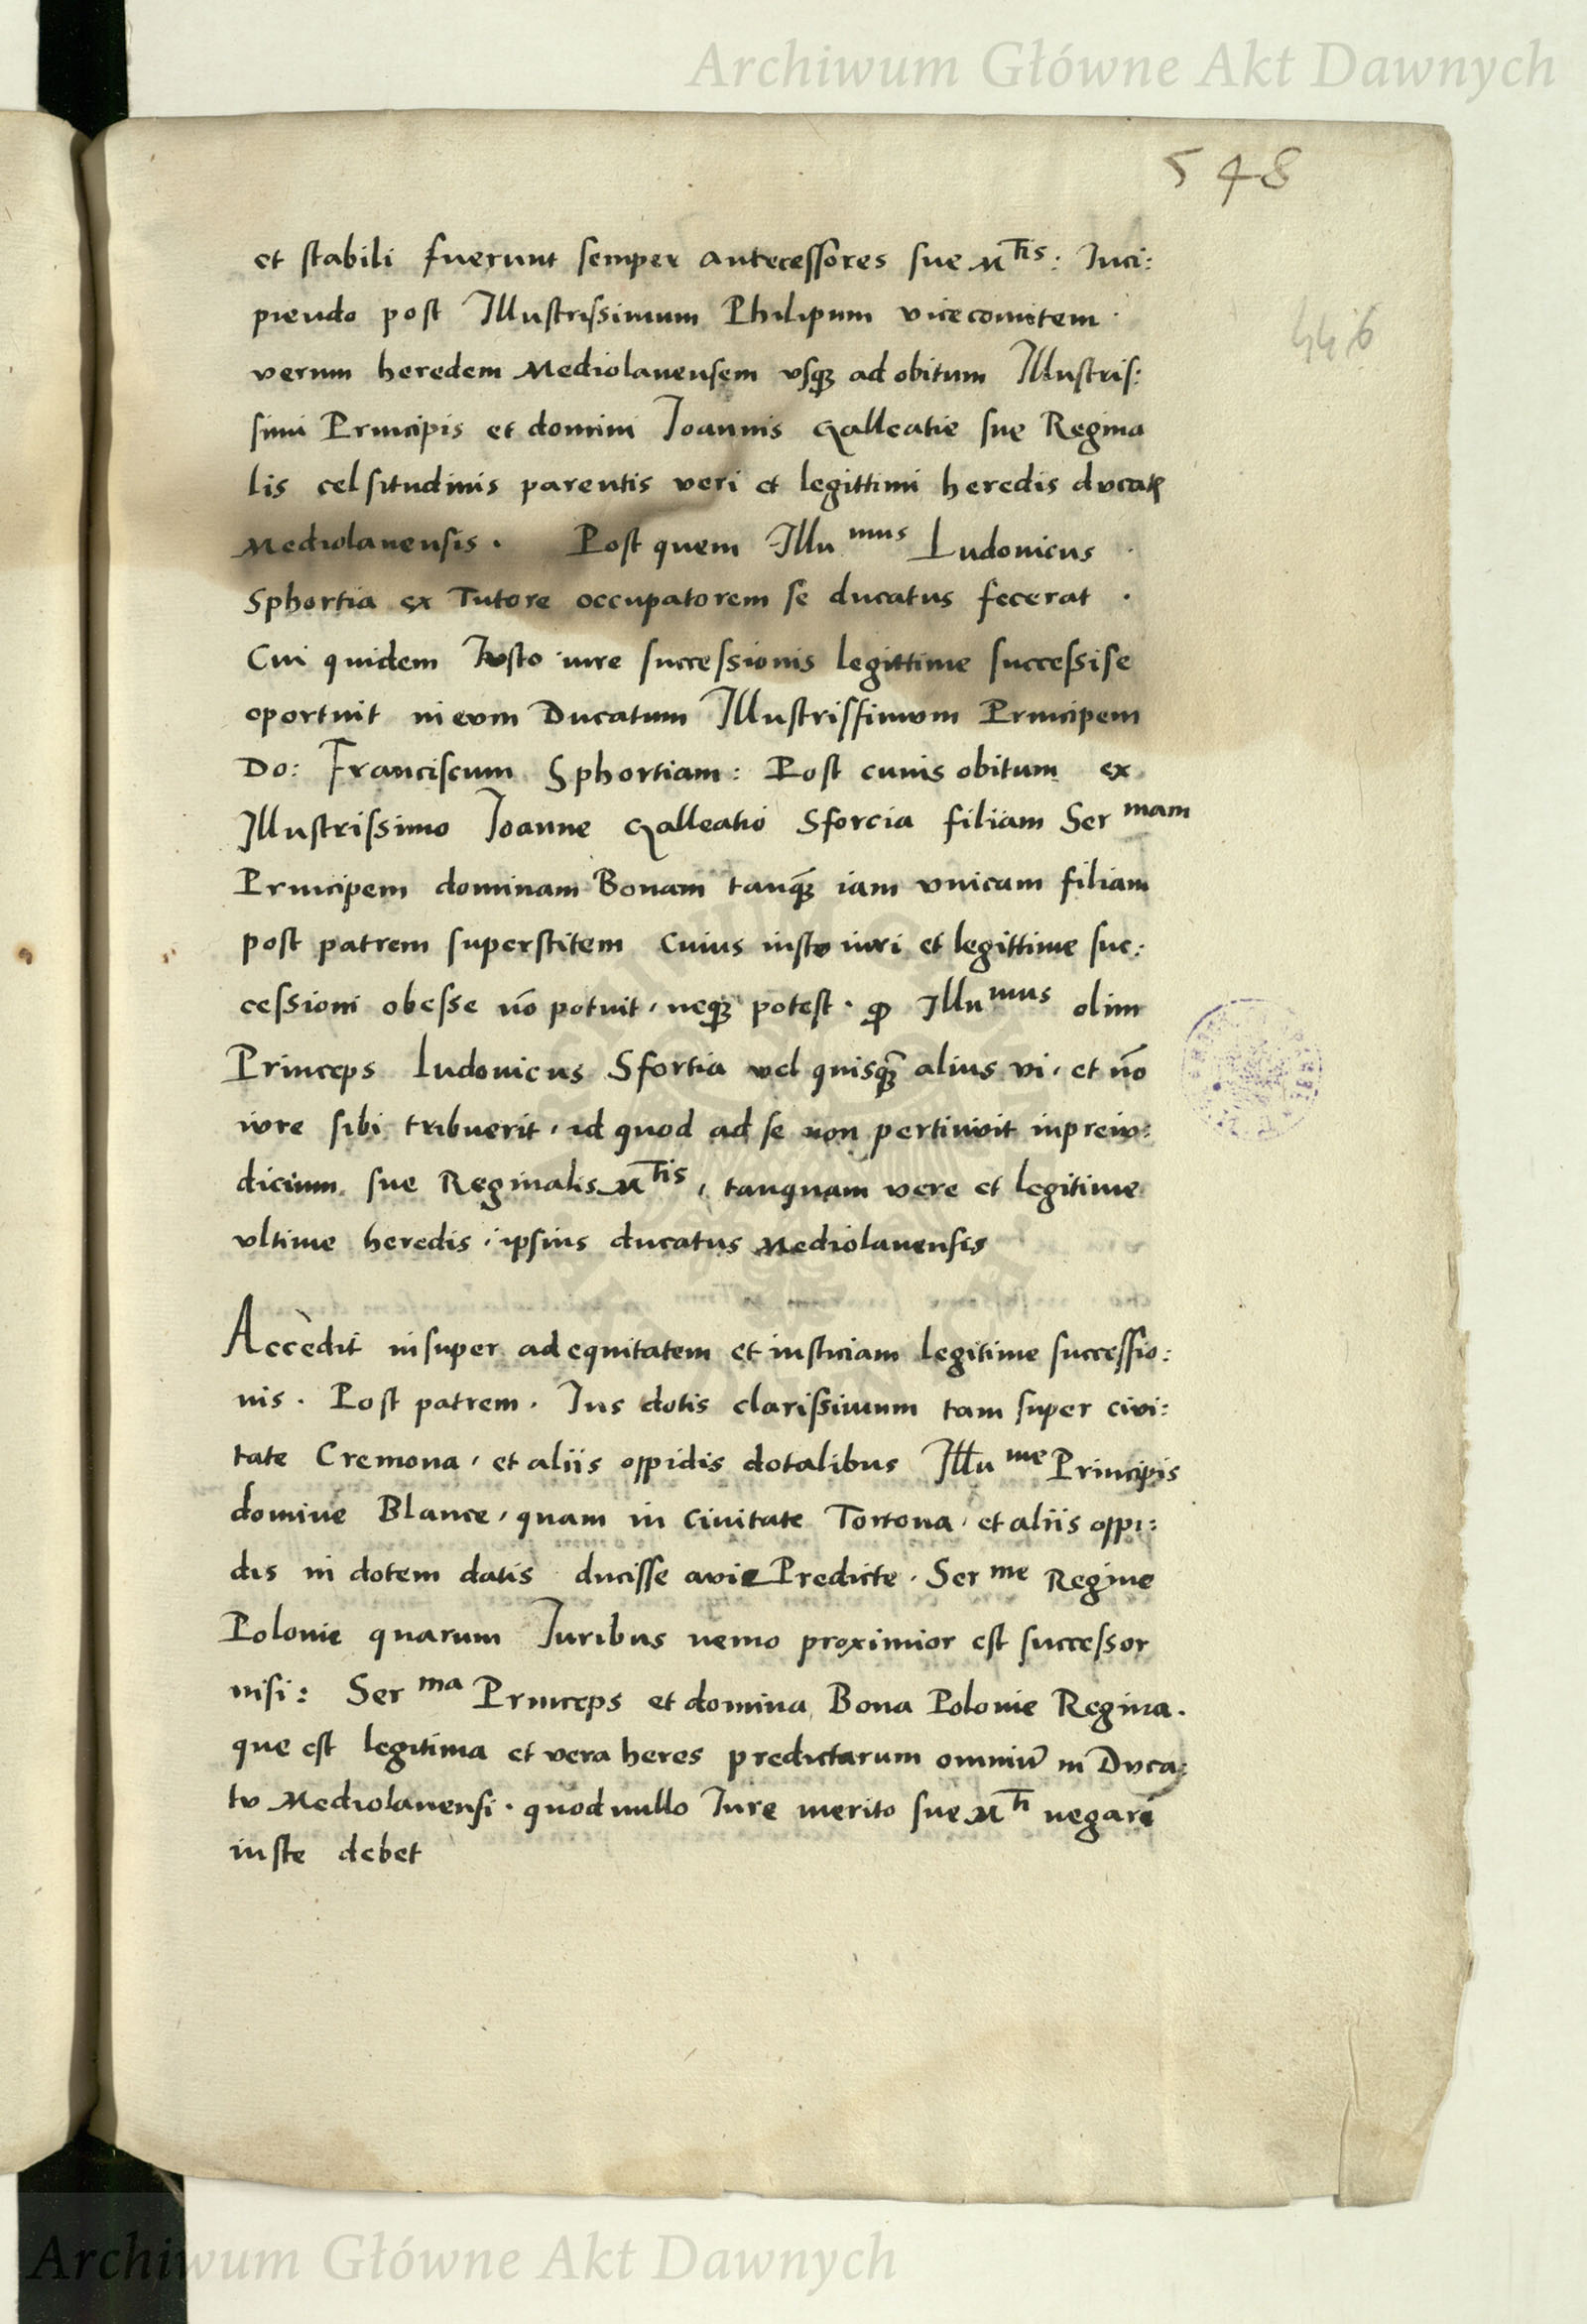 Archiwum Główne Akt Dawnych
548
446
et stabili fuerunt semper antecessores sue Mtis: Inci:
piendo post Illustrissimum Philipum vicecomitem
verum heredem Mediolanensem vsque ad obitum Illustris:
simi Principis et domini Joannis Galleatie sue Regina
lis celsitudinis parentis veri et legittimi heredis ducatus
Mediolanensis. Post quem Illumus Ludouicus
Sphortia ex Tutore occupatorem se ducatus fecerat.
Cui quidem Iusto iure successionis legittime successise
oportuit in eum Ducatum Illustrissimum Principem
Do: Franciscum Sphortiam: Post cuius obitum ex
Illustrissimo Joanne Galleatio Sforcia filiam Sermam
Principem dominam Bonam tanq̃ iam vnicam filiam
post patrem superstitem cuius iusto iuri et legittime suc:
cessioni obesse nõ potuit, neque potest. ꝙ Illumus olim
Princeps Ludouicus Sfortia vel quisq̃ alius vi, et nõ
iure sibi tribuerit, id quod ad se non pertinuit inpreiu:
dicium sue Reginalis Mtis, tanquam vere et legitime
vltime heredis, ipsius ducatus Mediolanensis
Accedit insuper ad equitatem et insticiam legitime successio:
nis. Post patrem. Ius dotis clarissimum tam super civi:
tate Cremona, et aliis oppidis dotalibus Illume Principis
domine Blance, quam in Ciuitate Tortona, et aliis oppi:
dis in dotem datis ducisse avie Predicte. Serme Regine
Polonie quarum Juribus nemo proximior est successor
nisi: Serma Princeps et domina Bona Polonie Regina.
que est legitima et vera heres predictarum omniũ in Duca:
tu Mediolanensi. quod nullo Iure merito sue Mti negari
iuste debet
Archiwum Główne Akt Dawnych